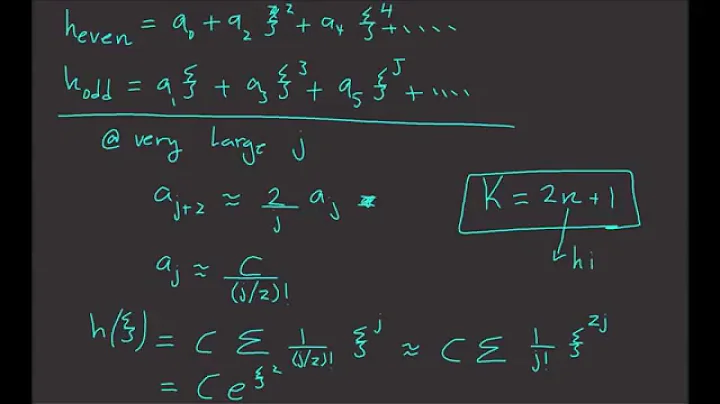 h_even = a_0 + a_2 ξ^2 + a_4 ξ^4 + ....
h_odd = a_1 ξ + a_3 ξ^3 + a_5 ξ^5 + ....
@ very large j
a_{j+2} ≈ 2/j a_j
K = 2n + 1
hi
a_j ≈ C/(j/2)!
h(ξ) = C Σ 1/(j/2)! ξ^j ≈ C Σ 1/j! ξ^{2j}
= C e^{ξ^2}